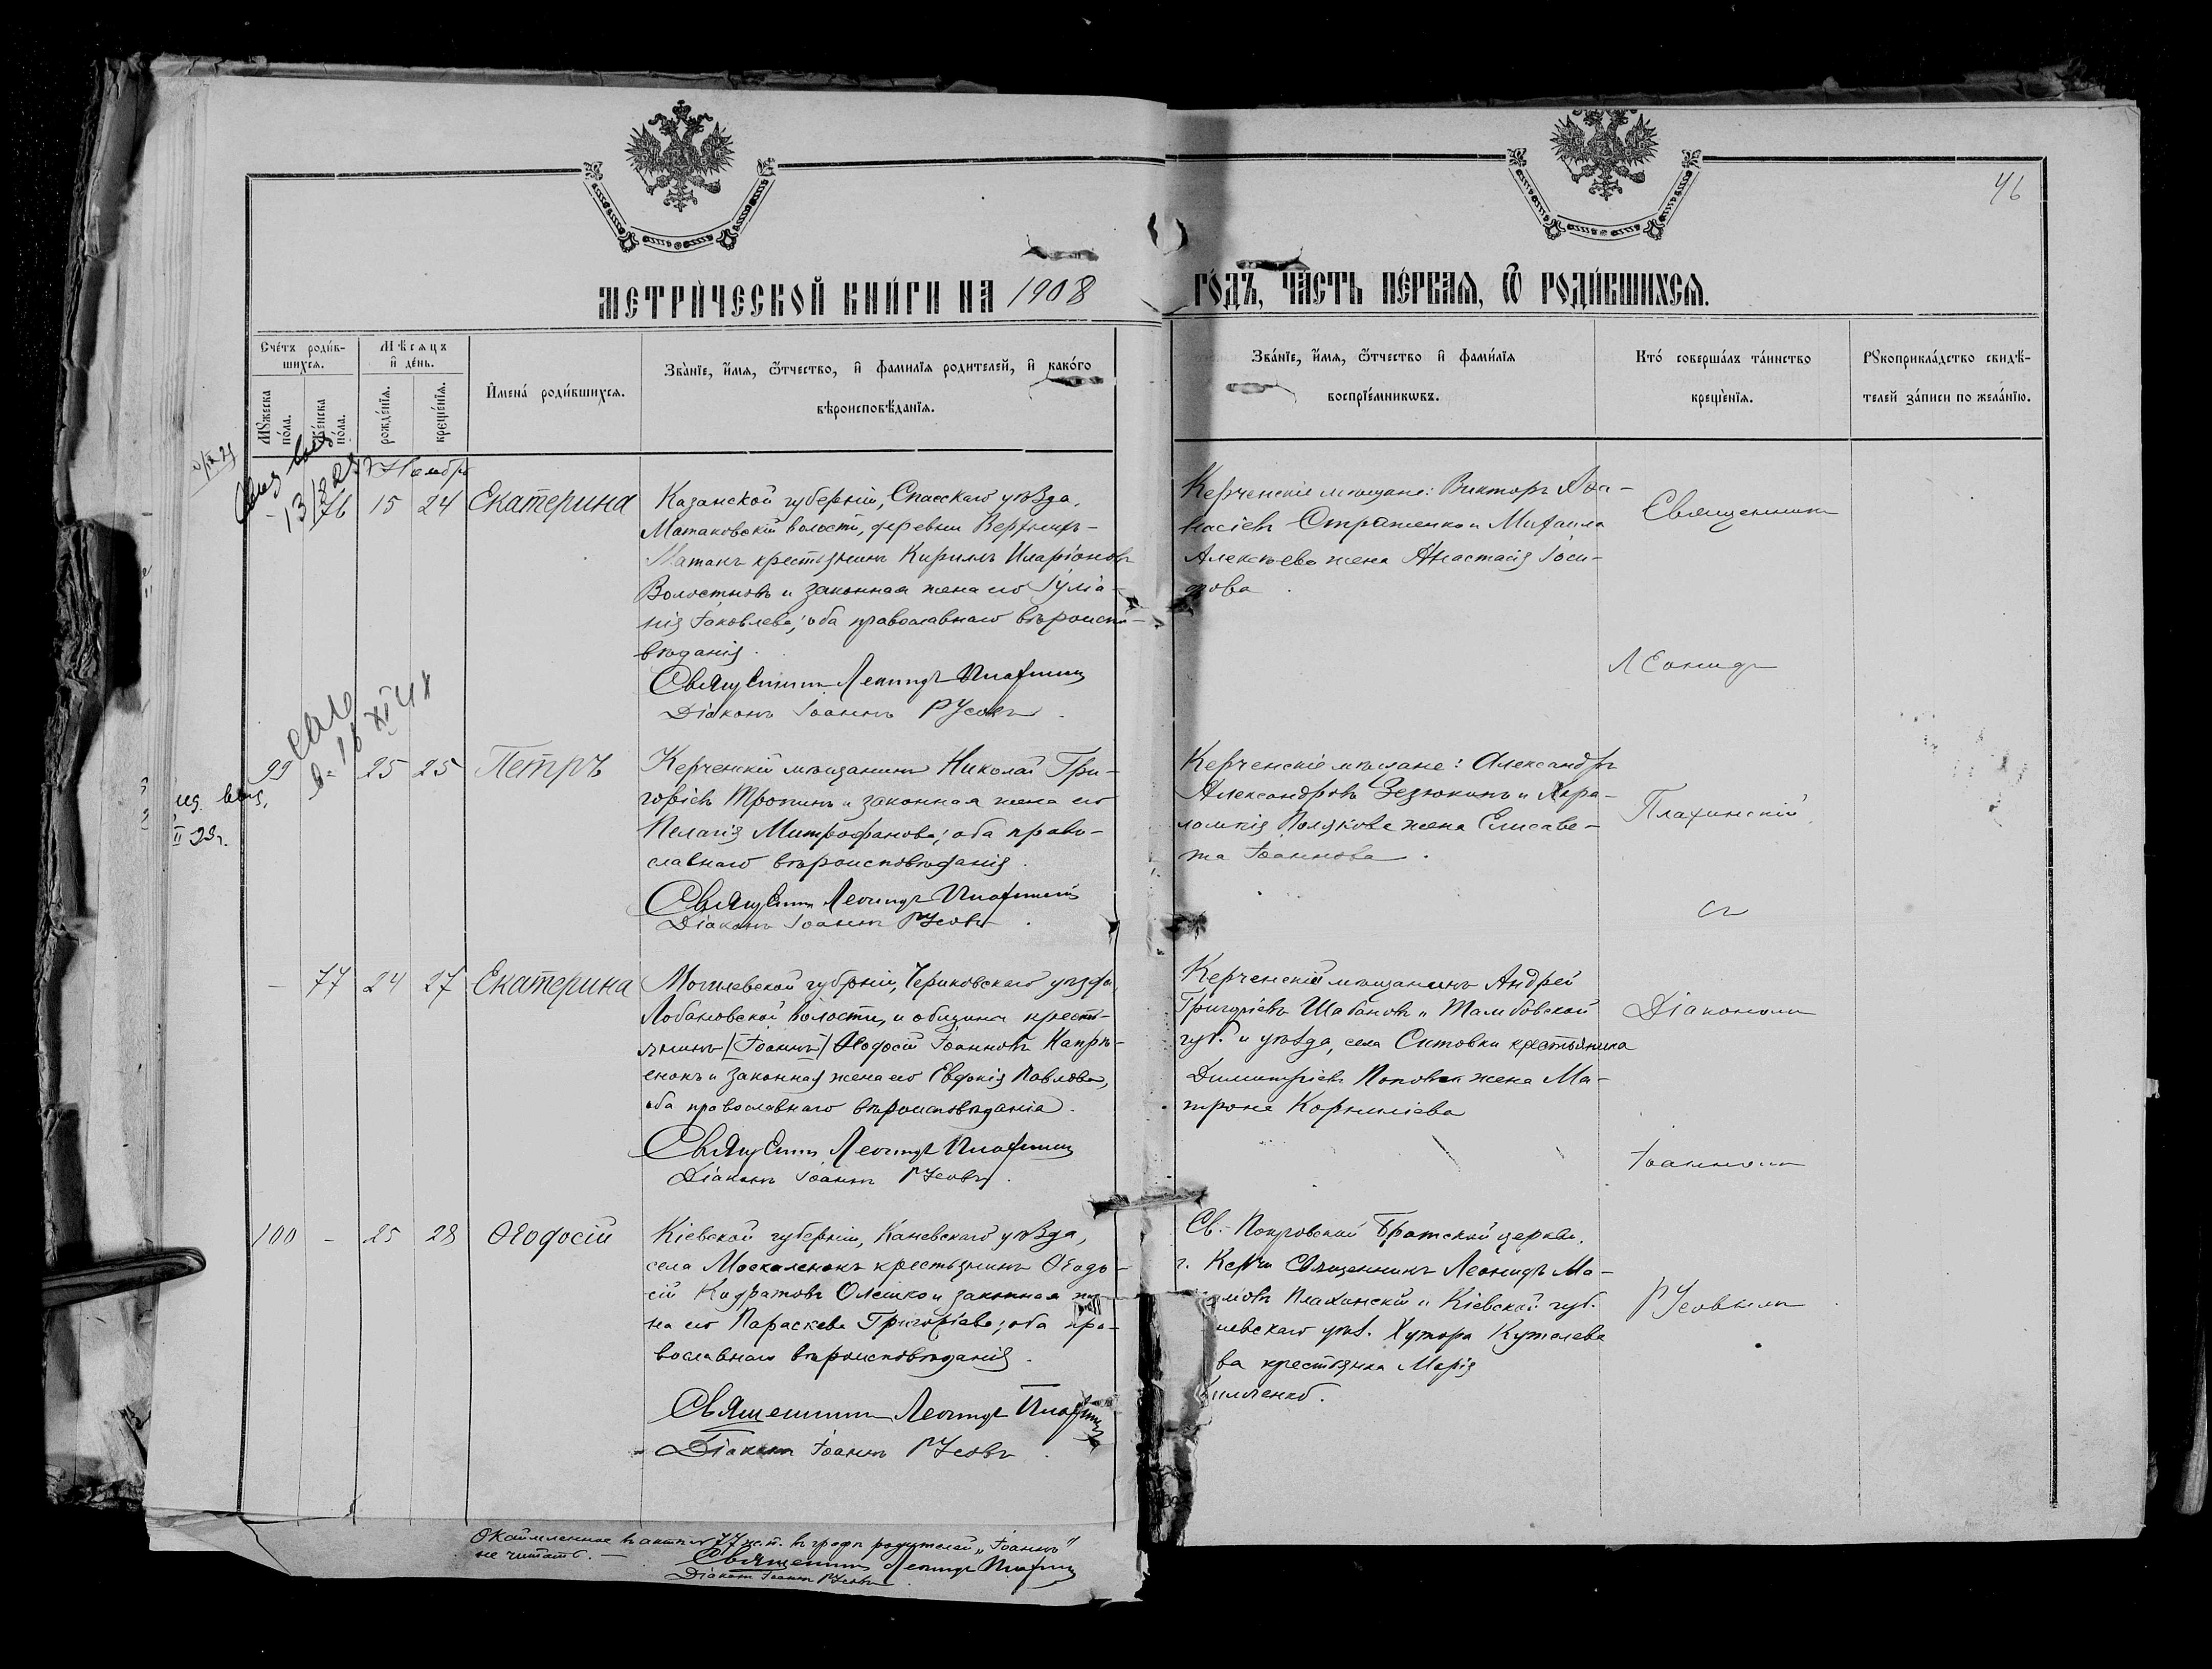 46
МЕТРИ́ЧЕСКОЙ КНИ́ГИ НА 1908 ГО́ДЪ, ЧА́СТЬ ПЕ́РВАЯ, Ѿ РОДИ́ВШИХСЯ.
Сче́тъ роди́в-
шихся.
Мѣ́сяцъ
и̂ де́нь.
Мꙋ́жеска
по́ла.
Же́нска
по́ла.
рожде́нїя.
креще́нїя.
И̂мена́ роди́вшихся.
Зва́нїе, и́мя, ѿ́тчество, и̂ фами́лїя родителей, и̂ како́го
вѣроисповѣ́данїя.
Зва́нїе, и́мя, ѿ́тчество и̂ фами́лїя
воспрїе́мникѡвъ.
Кто́ соверша́лъ та́инство
креще́нїя.
Рꙋкоприкла́дство свидѣ́-
телей за́писи по жела́нїю.
Ноября
- 76 15 24 Екатерина
Казанской губерніи, Спасскаго уѣзда,
Матаковской волости, деревни Верхнихъ-
Матакъ крестьянинъ Кирилъ Иларіоновъ
Волостновъ и законная жена его Іуліа-
нія Іаковлева; оба православнаго вѣроиспо-
вѣданія.
Священникъ Леонидъ Плахинскій
Діаконъ Іоаннъ Русовъ.
Керченскіе мѣщане: Викторъ Аѳа-
насіевъ Страшенко и Михаила
Алексѣева жена Анастасія Іоси-
фова.
Священникъ
Леонидъ
99 - 25 25 Петръ
Керченскій мѣщанинъ Николай Гри-
горіевъ Тропинъ и законная жена его
Пелагія Митрофанова; оба право-
славнаго вѣроисповѣданія.
Священникъ Леонидъ Плахинскій
Діаконъ Іоаннъ Русовъ.
Керченскіе мѣщане: Александръ
Александровъ Зезюкинъ и Хара-
лампія Полякова жена Елисаве-
та Іоаннова.
Плахинскій
съ
- 77 24 27 Екатерина
Могилевской губерніи, Чериковскаго уѣзда,
Лобановской волости, и общины кресть-
янинъ [Іоаннъ] Ѳеодосій Іоанновъ Капрѣ-
енокъ и законная жена его Евдокія Павлова,
оба православнаго вѣроисповѣданія.
Священникъ Леонидъ Плахинскій
Діаконъ Іоаннъ Русовъ.
Керченскій мѣщанинъ Андрей
Григоріевъ Шабановъ и Тамбовской
губ. и уѣзда, села Ситовки крестьянина
Димитріева Попова жена Ма-
трона Корниліева
Діакономъ
Іоанномъ
100 - 25 28 Ѳеодосій
Кіевской губерніи, Каневскаго уѣзда,
села Москаленокъ крестьянинъ Ѳеодо-
сій Кодратовъ Олешко и законная же-
на его Параскева Григоріева; оба пра-
вославнаго вѣроисповѣданія.
Священникъ Леонидъ Плахинскій
Діаконъ Іоаннъ Русовъ.
Св.-Покровской Братской церкви,
г. Керчи Священникъ Леонидъ Ма-
Плахинскій и Кіевской губ.
уѣз. Хутора
ва крестьянка Марія
Русовымъ
Окаймленное въ актѣ № 77 ж.п. въ графѣ родителей „Іоаннъ"
не читать. —
Священникъ Леонидъ Плахинскій
Діаконъ Іоаннъ Русовъ